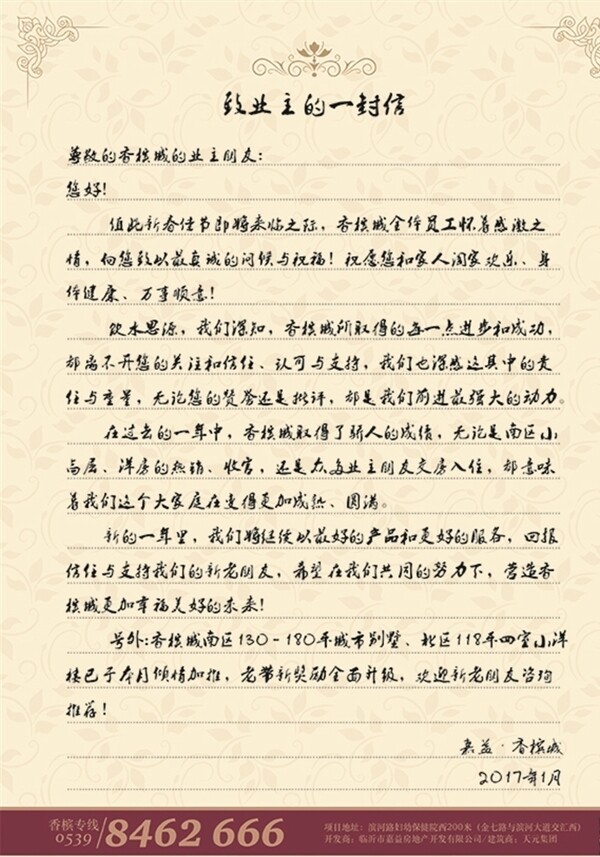 致业主的一封信
尊敬的香槟城的业主朋友：
您好！
值此新春佳节即将来临之际，香槟城全体员工怀着感激之
情，向您致以最真诚的问候与祝福！祝愿您和家人阖家欢乐、身
体健康、万事顺意！
饮水思源，我们深知，香槟城所取得的每一点进步和成功，
都离不开您的关注和信任、认可与支持，我们也深感这其中的责
任与重量，无论您的赞誉还是批评，都是我们前进最强大的动力。
在过去的一年中，香槟城取得了骄人的成绩，无论是南区小
高层、洋房的热销、收官，还是众多业主朋友交房入住，都意味
着我们这个大家庭在变得更加成熟、圆满。
新的一年里，我们将继续以最好的产品和更好的服务，回报
信任与支持我们的新老朋友，希望在我们共同的努力下，营造香
槟城更加幸福美好的未来！
号外：香槟城南区130-180平城市别墅、北区118平四室小洋
楼已于本月倾情加推，老带新奖励全面升级，欢迎新老朋友咨询
推荐！
嘉益·香槟城
2017年1月
香槟专线
0539
8462 666
项目地址：滨河路妇幼保健院西200米（金七路与滨河大道交汇西）
开发商：临沂市嘉益房地产开发有限公司/建筑商：天元集团